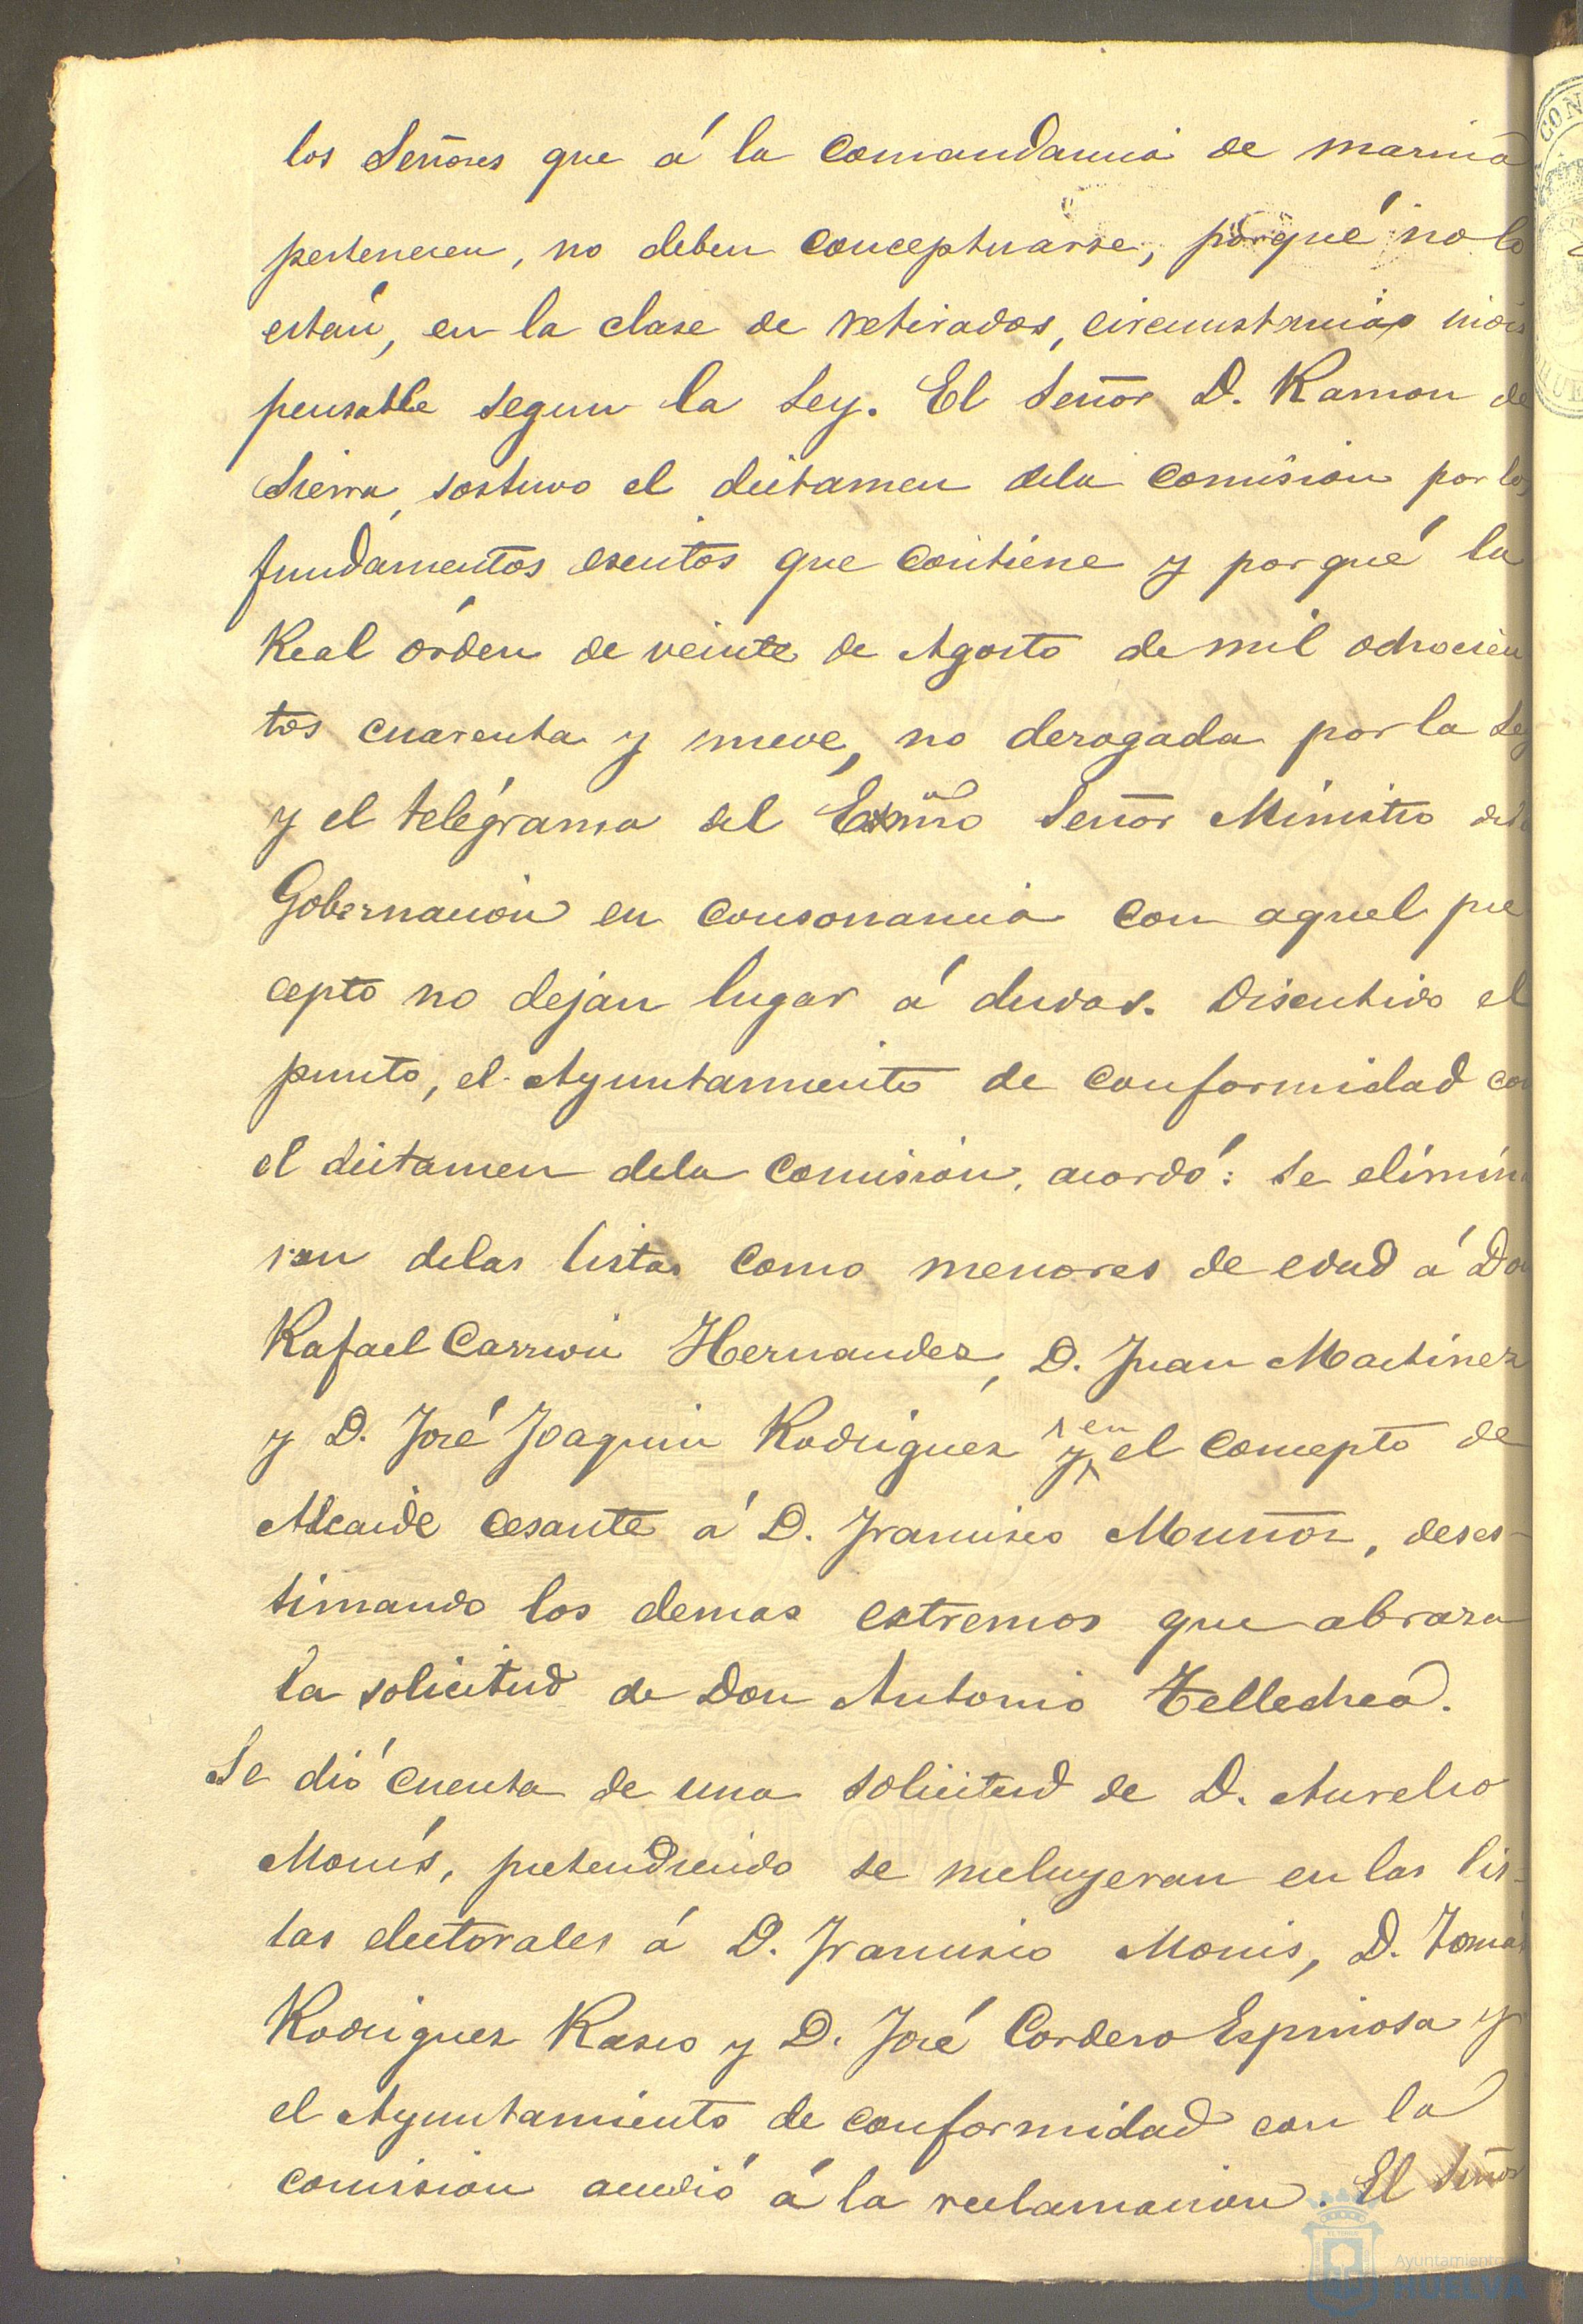 los Señores que á la Comandancia de marina
pertenecen, no deben conceptuarse, porqué no lo
están, en la clase de retirados, circunstancias indis
pensable segun la Ley. El Señor D. Ramon de
Sierra, sostuvo el dictamen dela Comision por los
fundamentos escritos que contiene y porqué la
Real órden de veinte de Agosto de mil ochocien
tos cuarenta y nueve, no derogada por la Ley
y el telégrama del Exmo Señor Ministro dela
Gobernacion en consonancia con aquel pre
cepto no dejan lugar á dudas. Discutido el
punto, el Ayuntamiento de conformidad con
el dictamen dela Comision, acordó: se elimina
ran delas listas como menores de edad á Don
Rafael Carrion Hernandez, D. Juan Martinez
y D. José Joaquin Rodriguez y en el concepto de
Alcaide cesante á D. Francisco Muñoz, deses-
timando los demas estremos que abraza
la solicitud de Don Antonio Tellechea.
Se dió cuenta de una solicitud de D. Aurelio
Monís, pretendiendo se incluyeran en las lis-
tas electorales á D. Francisco Monis, D. Tomás
Rodriguez Rasco y D. José Cordero Espinosa y
el Ayuntamiento de conformidad con la
comision accedió á la reclamacion. El Señor
Ayuntamiento
HUELVA